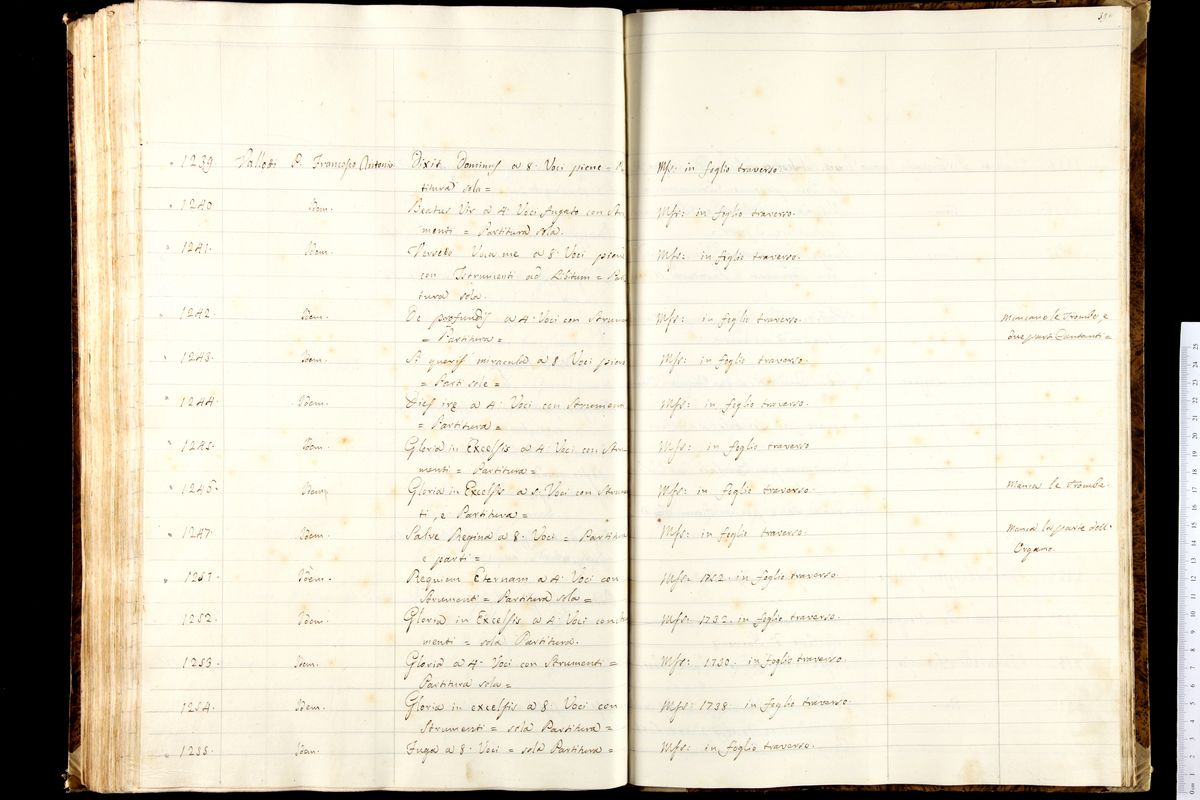 1239 Vallotti P. Francesco Antonio Dixit Dominus a 8. Voci piene = Par Mss: in foglio traverso
titura sola =
1240 Idem. Beatus Vir a 4. Voci fugato con Stru Mss: in foglio traverso.
menti = Partitura sola.
1241. Idem. Verseto a 8. Voci piene Mss: in foglio traverso.
con Istrumenti ad Libitum = Par
titura sola.
1242. Idem. De profundis a 4. Voci con Strum Mss: in foglio traverso. Mancano le Trombe, e
= Partitura = due parti Cantanti =
1243. Idem. Si queris miracula a 8. Voci piene Mss: in foglio traverso.
= Parti sole =
1244. Idem. Dies irę a 4. Voci con Strumenti Mss: in foglio traverso.
= Partitura =
1245. Idem. Gloria in Excelsis a 4. Voci con Stru Mss: in foglio traverso
menti = Partitura =
1246. Idem. Gloria in Excelsis a 5. Voci con Strum Mss: in foglio traverso. Manca le Trombe.
ti, e Partitura =
1247. Idem. Salve Regina a 8. Voci = Partitura Mss: in foglio traverso. Manca la parte dell'
e parti = Organo.
1251. Idem. Requiem Eternam a 4. Voci con Mss: 1752. in foglio traverso
Strumenti = Partitura sola =
1252. Idem. Gloria in Excelsis a 4. Voci con Stru Mss: 1732. in foglio traverso.
menti = sola Partitura.
1253. Idem. Gloria a 4. Voci con Strumenti = Mss: 1730. in foglio traverso.
Partitura sola =
1254. Idem. Gloria in excelsis a 8. Voci con Mss: 1738. in foglio traverso.
Strumenti = sola Partitura =
1255. Idem. Fuga a 8. Voci = sola Partitura = Mss: in foglio traverso.